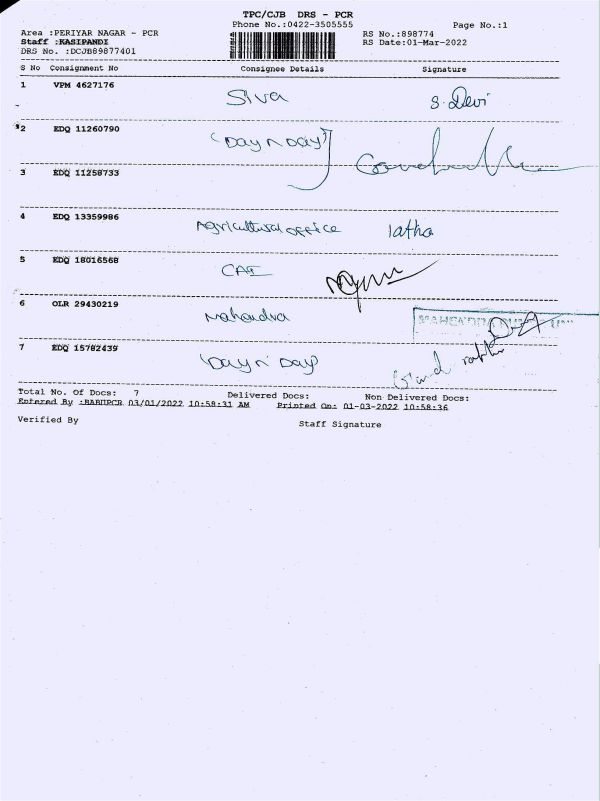 TPC/CJB DRS - PCR
Phone No.:0422-3505555 Page No.:1
Area :PERIYAR NAGAR - PCR RS No.:898774
Staff :KASIPANDI RS Date:01-Mar-2022
DRS No. :DCJB89877401
S No Consignment No Consignee Details Signature
1 VPM 4627176 Siva S. Devi
2 EDQ 11260790 (Day n Day)
3 EDQ 11258733
4 EDQ 13359986 Agricultural office latha
5 EDQ 18016568
6 OLR 29430219 Mahendra
7 EDQ 15782439 (Day n' Day)
Total No. Of Docs: 7 Delivered Docs: Non Delivered Docs:
Entered By :BABUPCR 03/01/2022 10:58:31 AM Printed On: 01-03-2022 10:58:36
Verified By Staff Signature